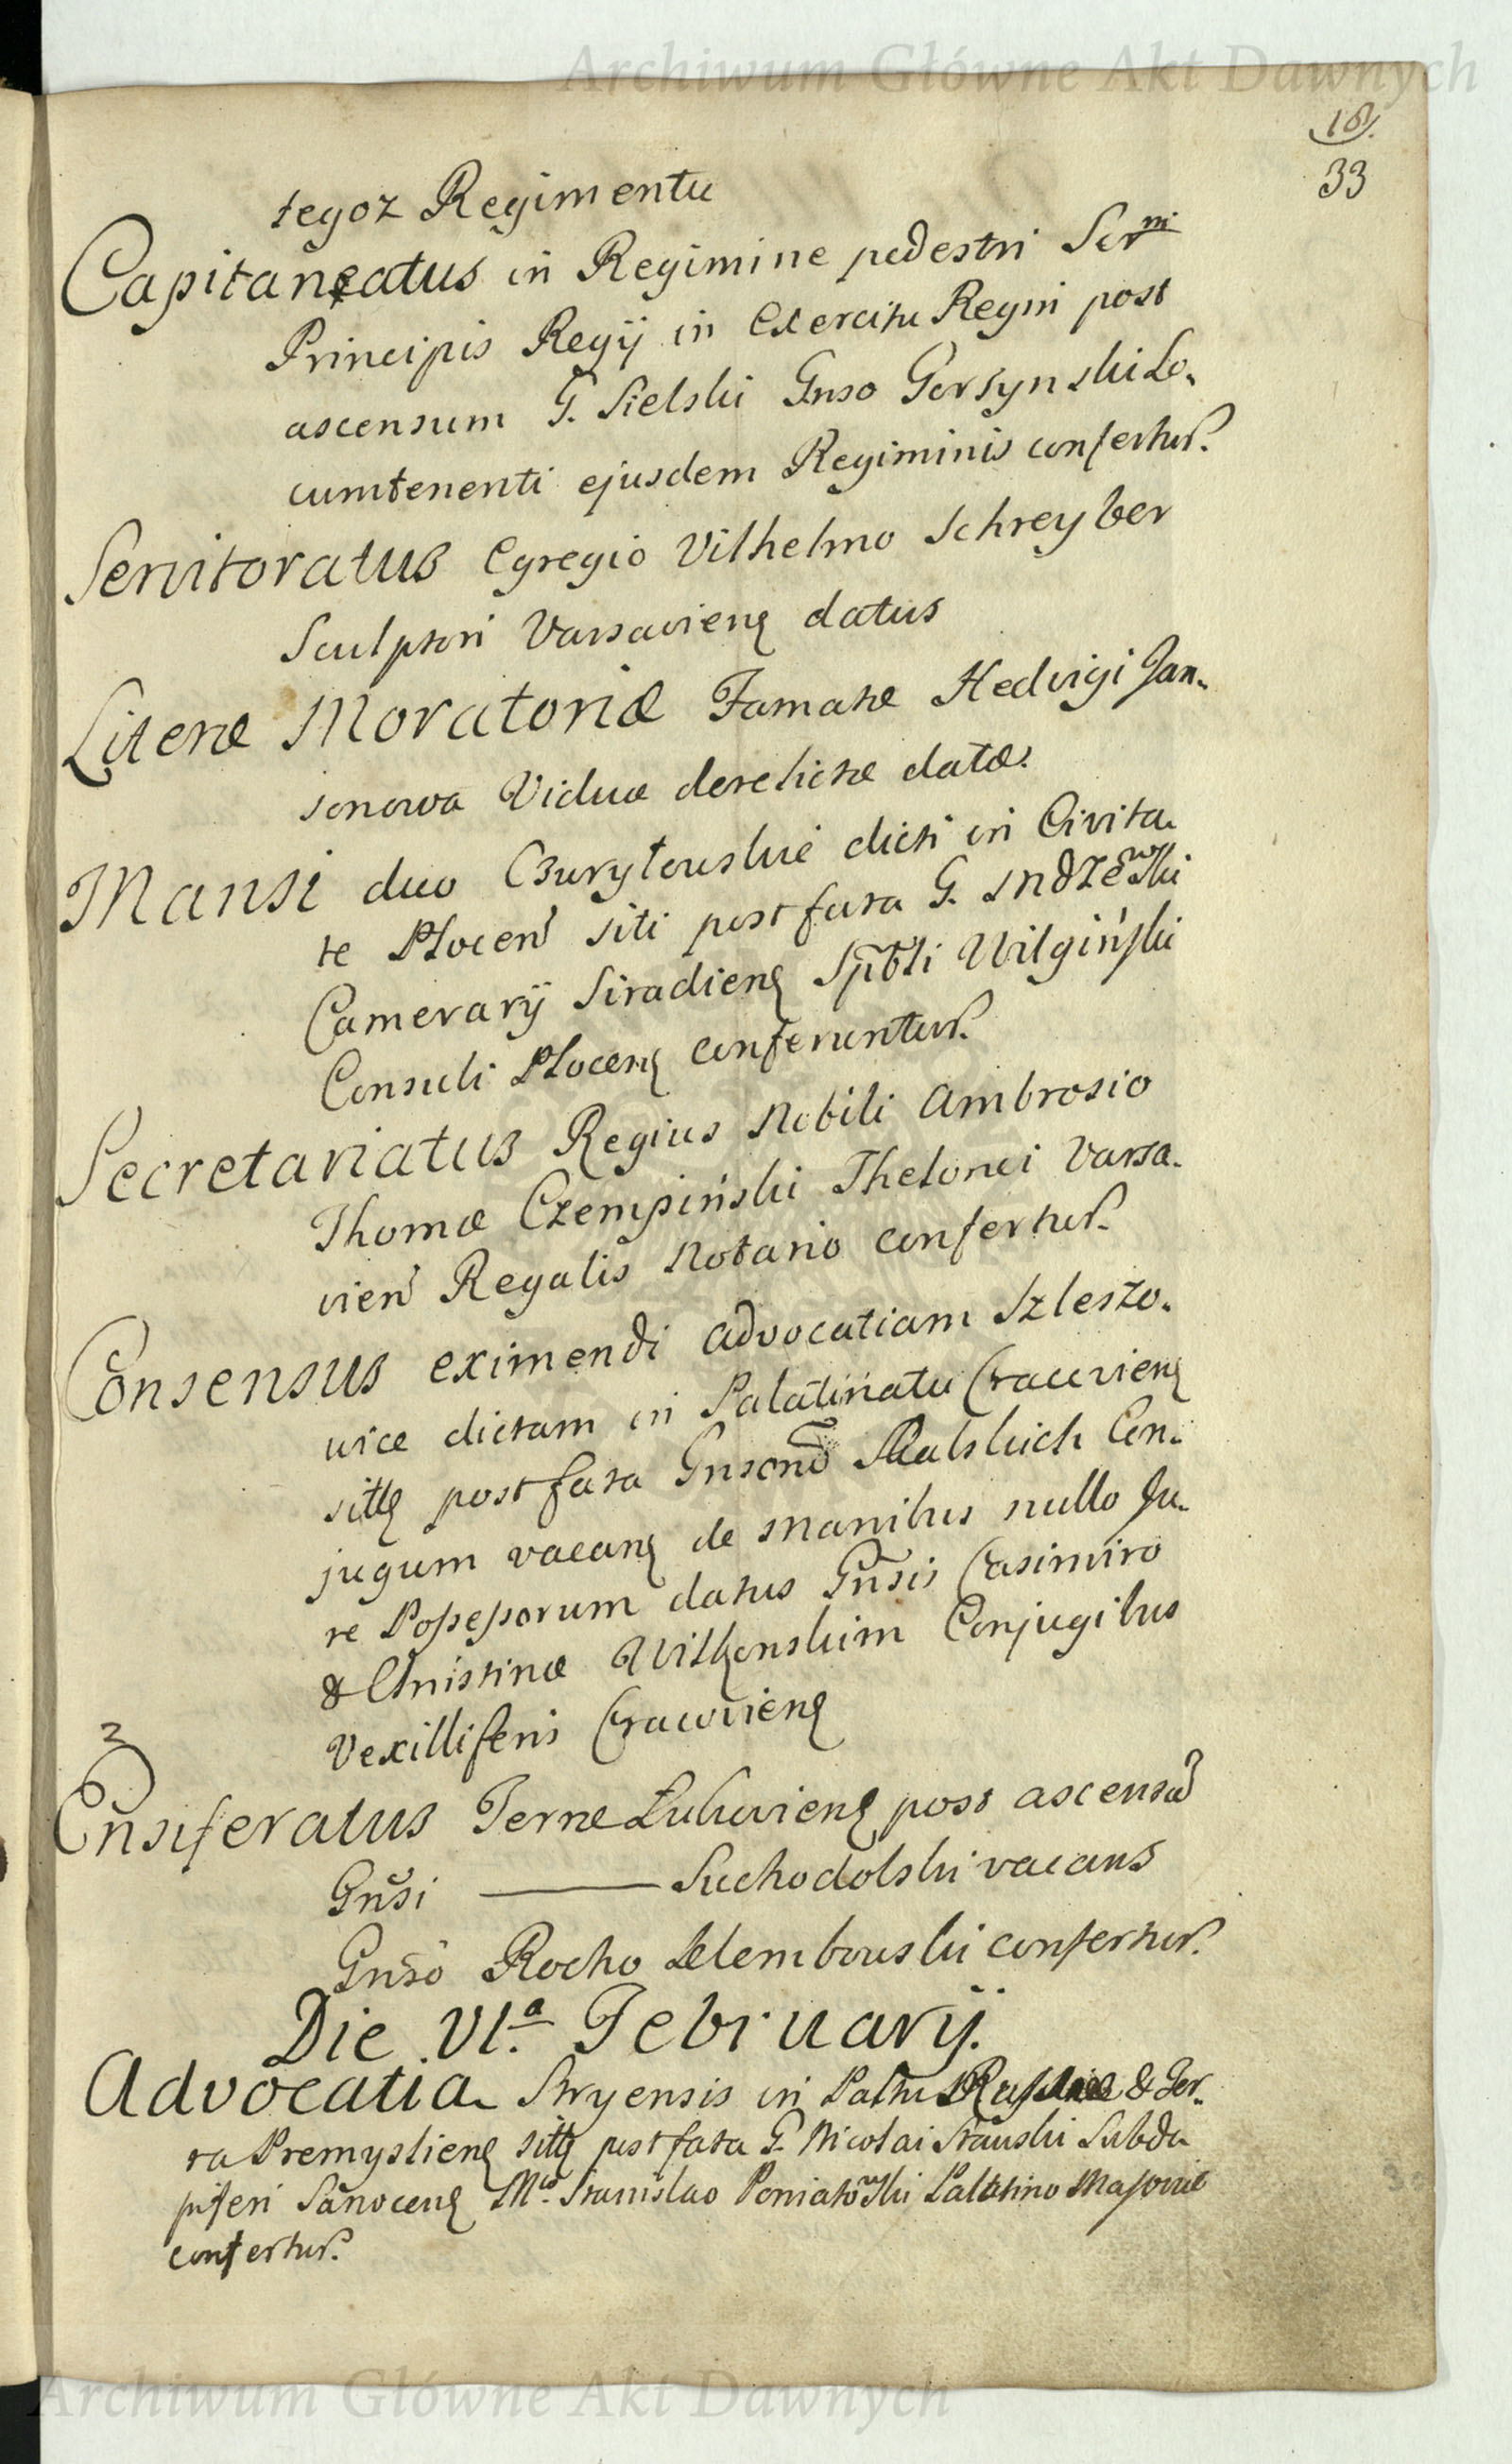 Archiwum Główne Akt Dawnych
18.
33
tegoz Regimentu
Capitaneatus in Regimine pedestri Ser<sup>mi</sup>
Principis Regij in Exercitu Regni post
ascensum G. Sielski Gnso Gorsynski Lo-
cumtenenti ejusdem Regiminis confertur.
Servitoratus Egregio Vilhelmo Schreyber
Sculptori Varsavieng datus
Literæ Moratoriæ Famatæ Hedvigi Jan-
sonowa Viduæ derelictæ datæ.
Mansi duo Burytowskie dicti in Civita-
te Płocen siti post fata G. Jndzewski
Camerarij Siradieng Spbli Wilgiński
Consuli Płoceng conferuntur.
Secretariatus Regius Nobili Ambrosio
Thomæ Czempiński Thelonei Varsa-
vien Regalis Notario confertur.
Consensus eximendi advocatiam Szleszo-
vice dictam in Palatinatu Cracovieng
sittg post fata Gnsorum Skalskich Con-
jugum vacang de manibus nullo Ju-
re Possessorum datus Gnsis Casimiro
& Christinæ Wilkonskim Conjugibus
Vexilliferis Cracovieng
Ensiferatus Terræ Łukovieng post ascensu
Gnsi ——— Suchodolski vacans
Gnso Rocho Klembowski confertur.
Die VI.<sup>a</sup> Februarij.
Advocatia Stryensis in Paltu Russiæ & Ter-
ra Premyslieng sittg post fata G. Nicolai Stauski Subda
piferi Sanoceng M<sup>co</sup> Stanislao Poniatowski Palatino Masoviæ
confertur.
Archiwum Główne Akt Dawnych